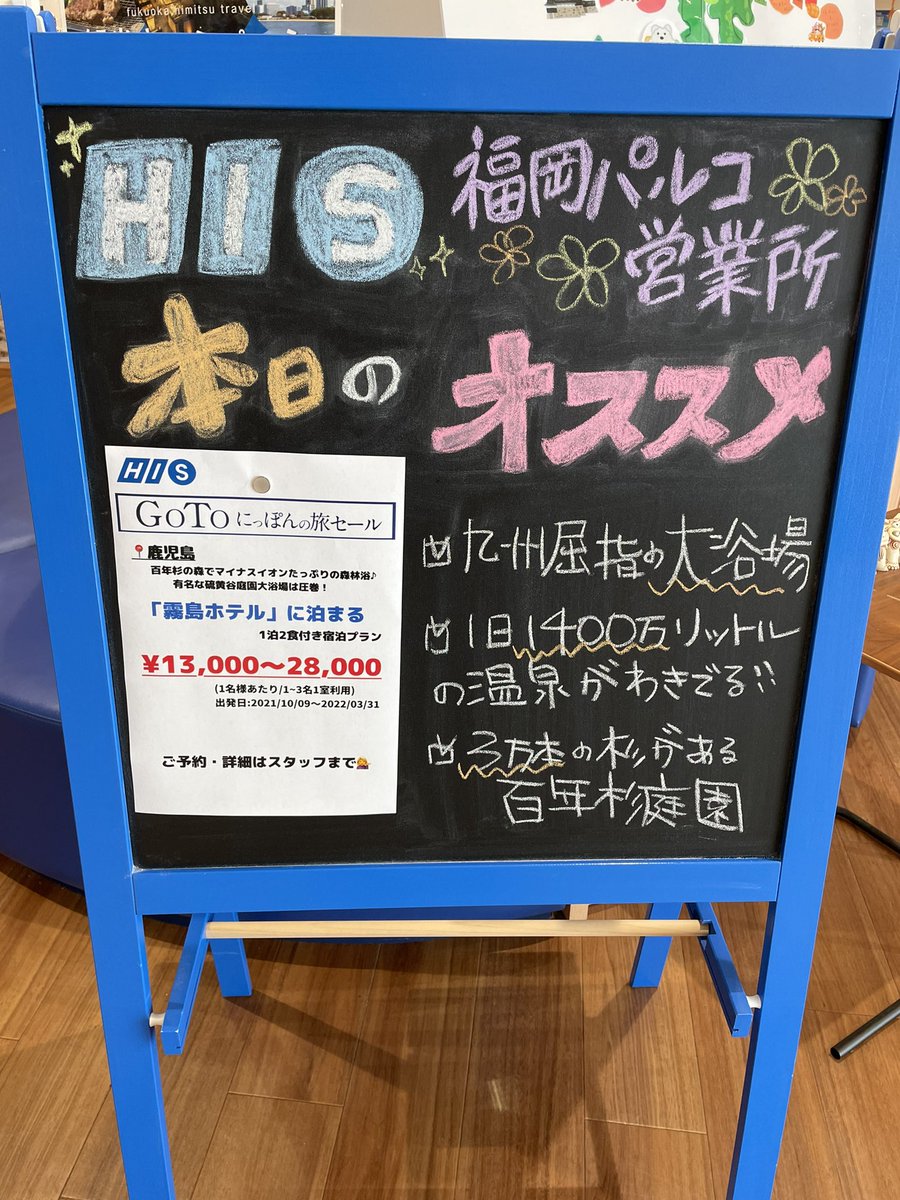 fukuoka himitsu travel
HIS 福岡パルコ
営業所
本日の オススメ
HIS
GoTo にっぽんの旅セール
📍鹿児島
百年杉の森でマイナスイオンたっぷりの森林浴♪
有名な硫黄谷庭園大浴場は圧巻！
「霧島ホテル」に泊まる
1泊2食付き宿泊プラン
¥13,000～28,000
(1名様あたり/1~3名1室利用)
出発日:2021/10/09～2022/03/31
ご予約・詳細はスタッフまで💁
☑九州屈指の大浴場
☑1日1400万リットル
の温泉がわきでる!!
☑3万本の杉がある
百年杉庭園